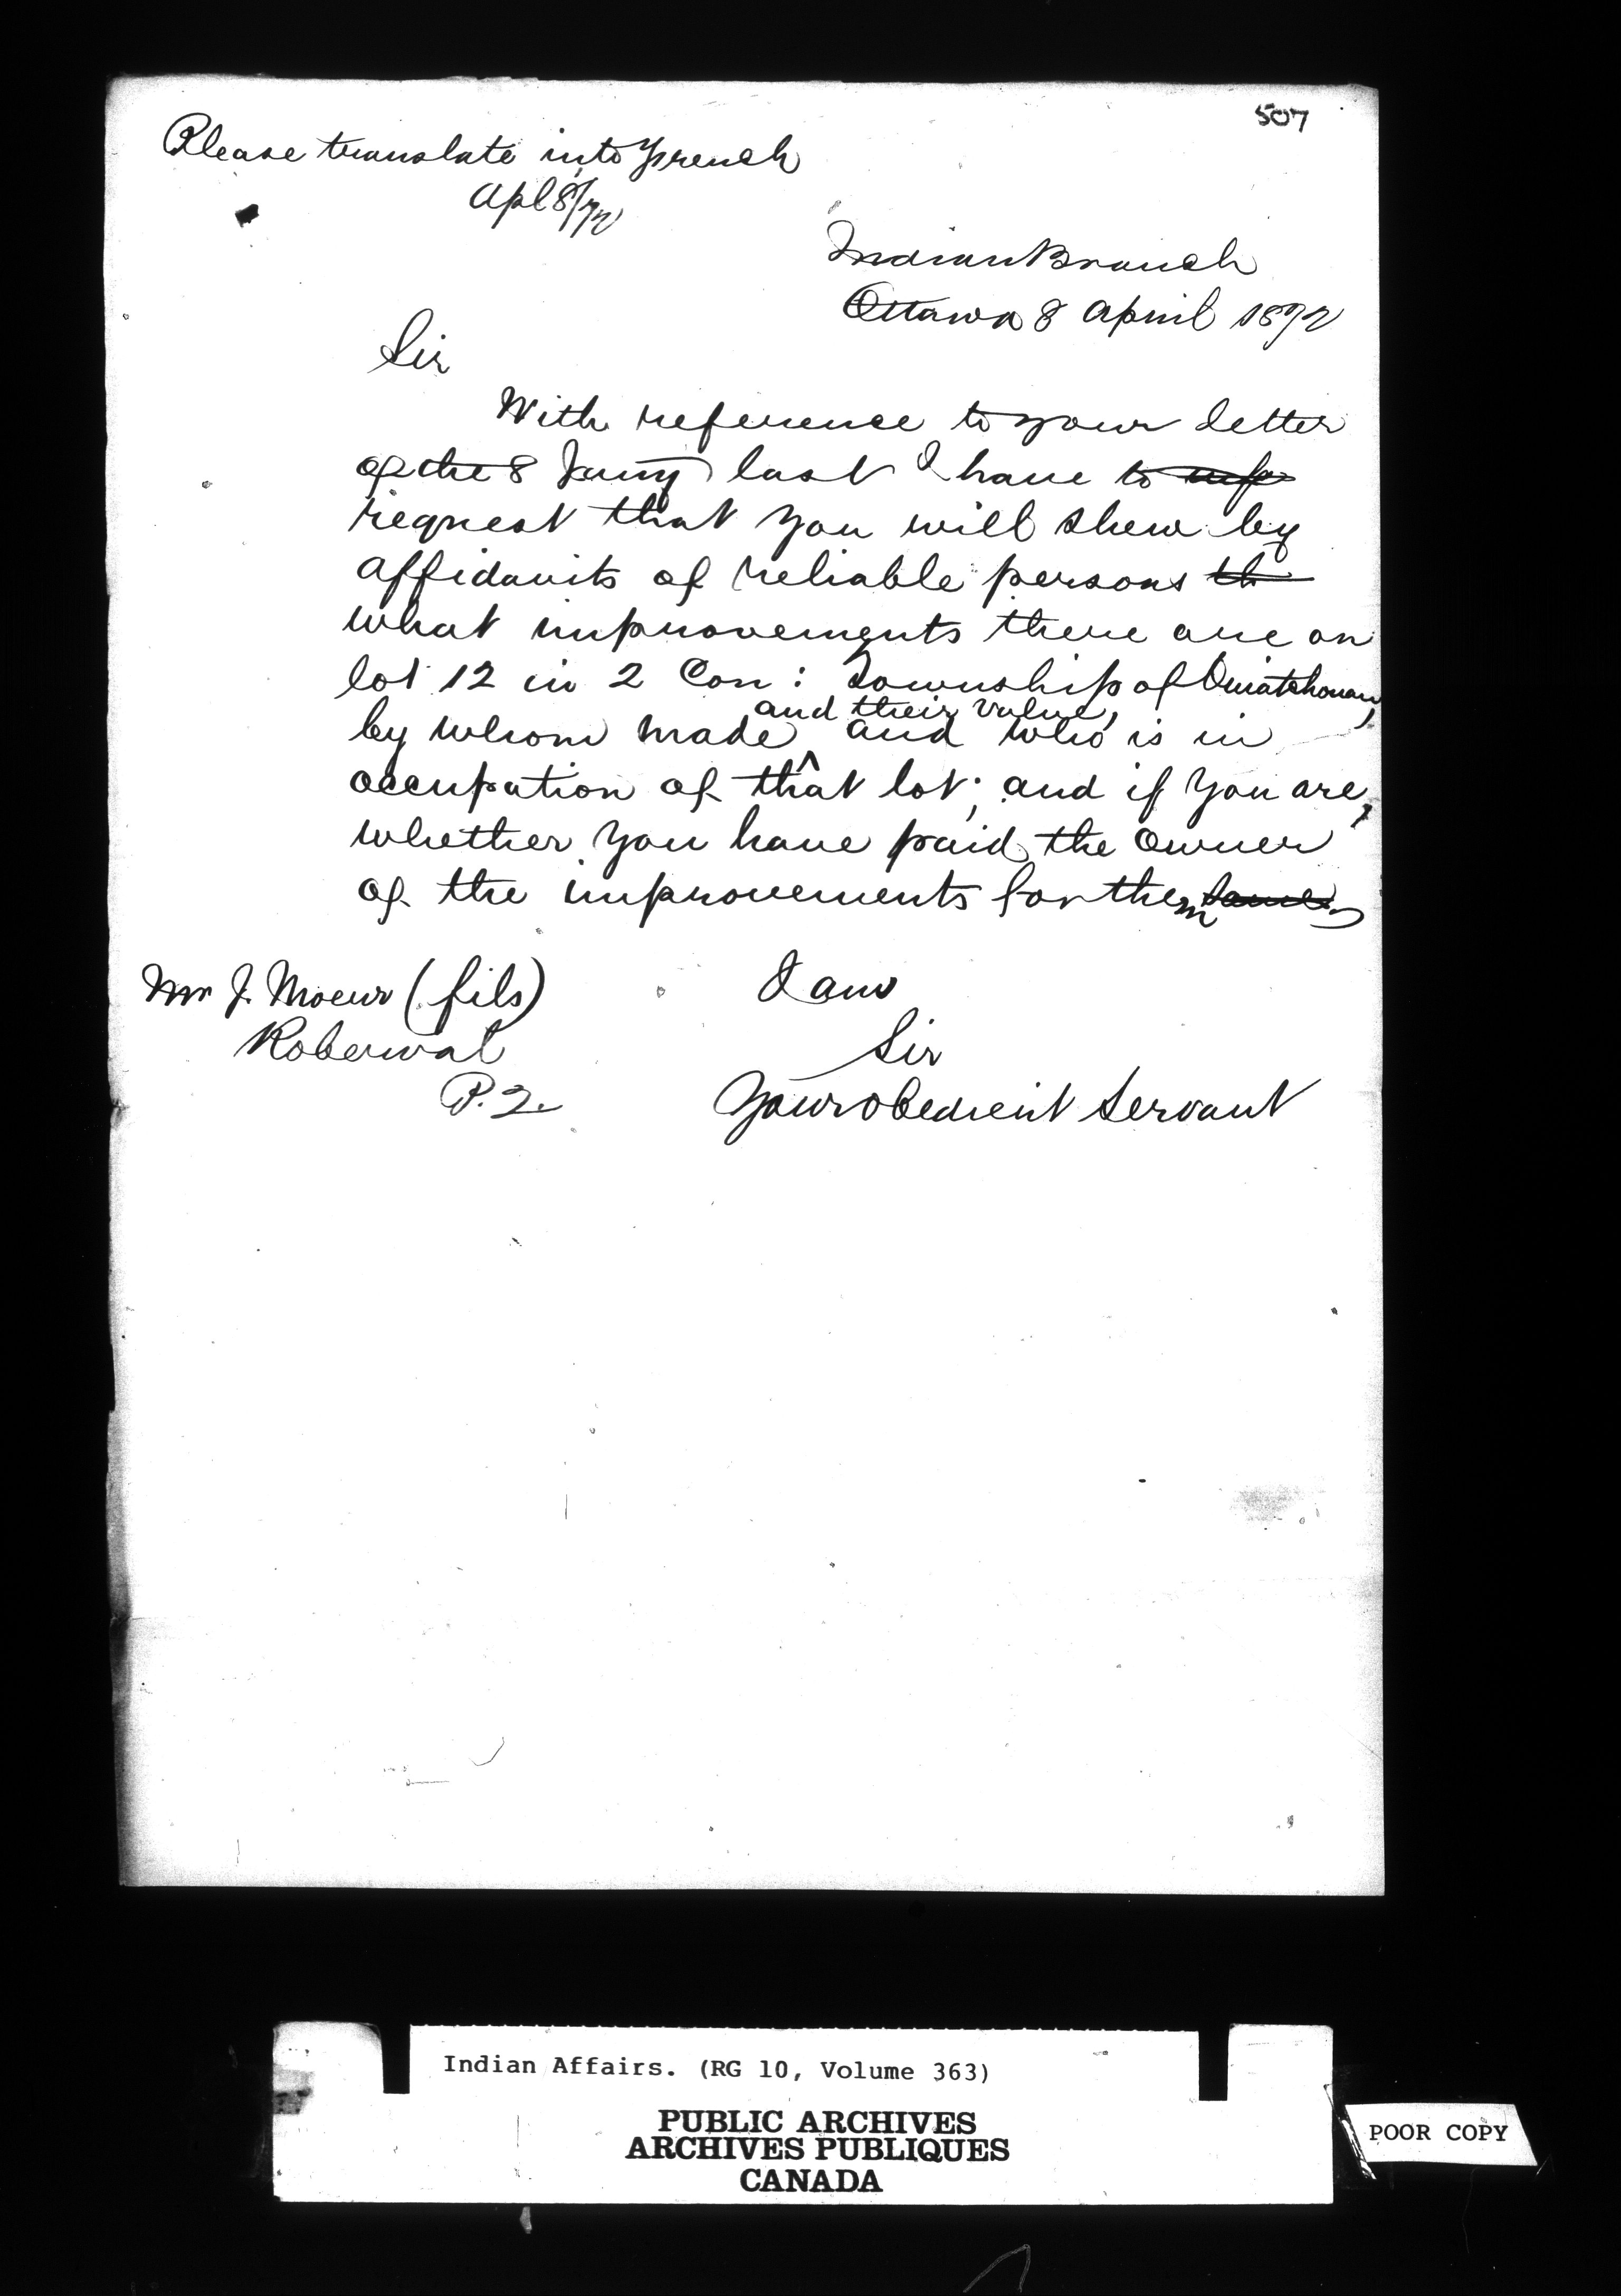 507
Please translate into French
Apl 8/72
Indian Branch
Ottawa 8 April 1872
Sir
With reference to your letter
of the 8 Jany last I have to
request that you will shew by
affidavits of reliable persons th
what improvements there are on
lot 12 in 2 Con: Township of Ouiatchouan,
and their value,
by whom made ^ and who is in
occupation of that lot; and if you are,
whether you have paid the owner
of the improvements for them same
Mr J. Moeur (fils)
Roberval
P.Q.
I am
Sir
Your obedient Servant
Indian Affairs. (RG 10, Volume 363)
PUBLIC ARCHIVES
ARCHIVES PUBLIQUES
CANADA
POOR COPY